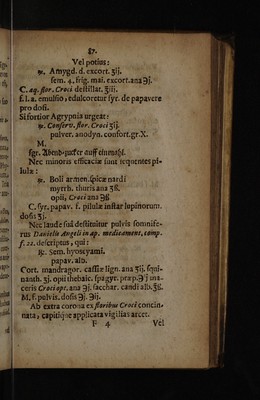 87.
Vel potius:
℞. Amygd. d. excort. ʒij.
sem. 4. frig. mai. excort. ana ℈j.
C. aq. flor. Croci destillat. ℥iij.
f. l. a. emulsio, edulcoretur syr. de papavere
pro dosi.
Si fortior Agrypnia urgeat:
℞. Conserv. flor. Croci ʒij.
pulver. anodyn. confort. gr. X.
M.
sgr. Abend-zucker auff einmahl.
Nec minoris efficaciæ sunt sequentes pi-
lulæ:
℞. Boli armen. spicæ nardi
myrrh. thuris ana ʒß.
opii, Croci ana ℈ß
C. syr. papav. f. pilulæ instar lupinorum.
dosi ʒj.
Nec laude suâ destituitur pulvis somnife-
rus Danielis Angeli in ap. medicament. comp.
f. 22. descriptus, qui:
℞. Sem. hyoscyami.
papav. alb.
Cort. mandragor. cassiæ lign. ana ʒij. squi-
nanth. ʒj. opii thebaic. spagyr. præp. ℈j ma-
ceris Croci opt. ana ℈j. sacchar. candi alb. ℥ß.
M. f. pulvis. dosis ℈j. ℈ij.
Ab extra corona ex floribus Croci concin-
nata, capitique applicata vigilias arcet.
F 4 Vel